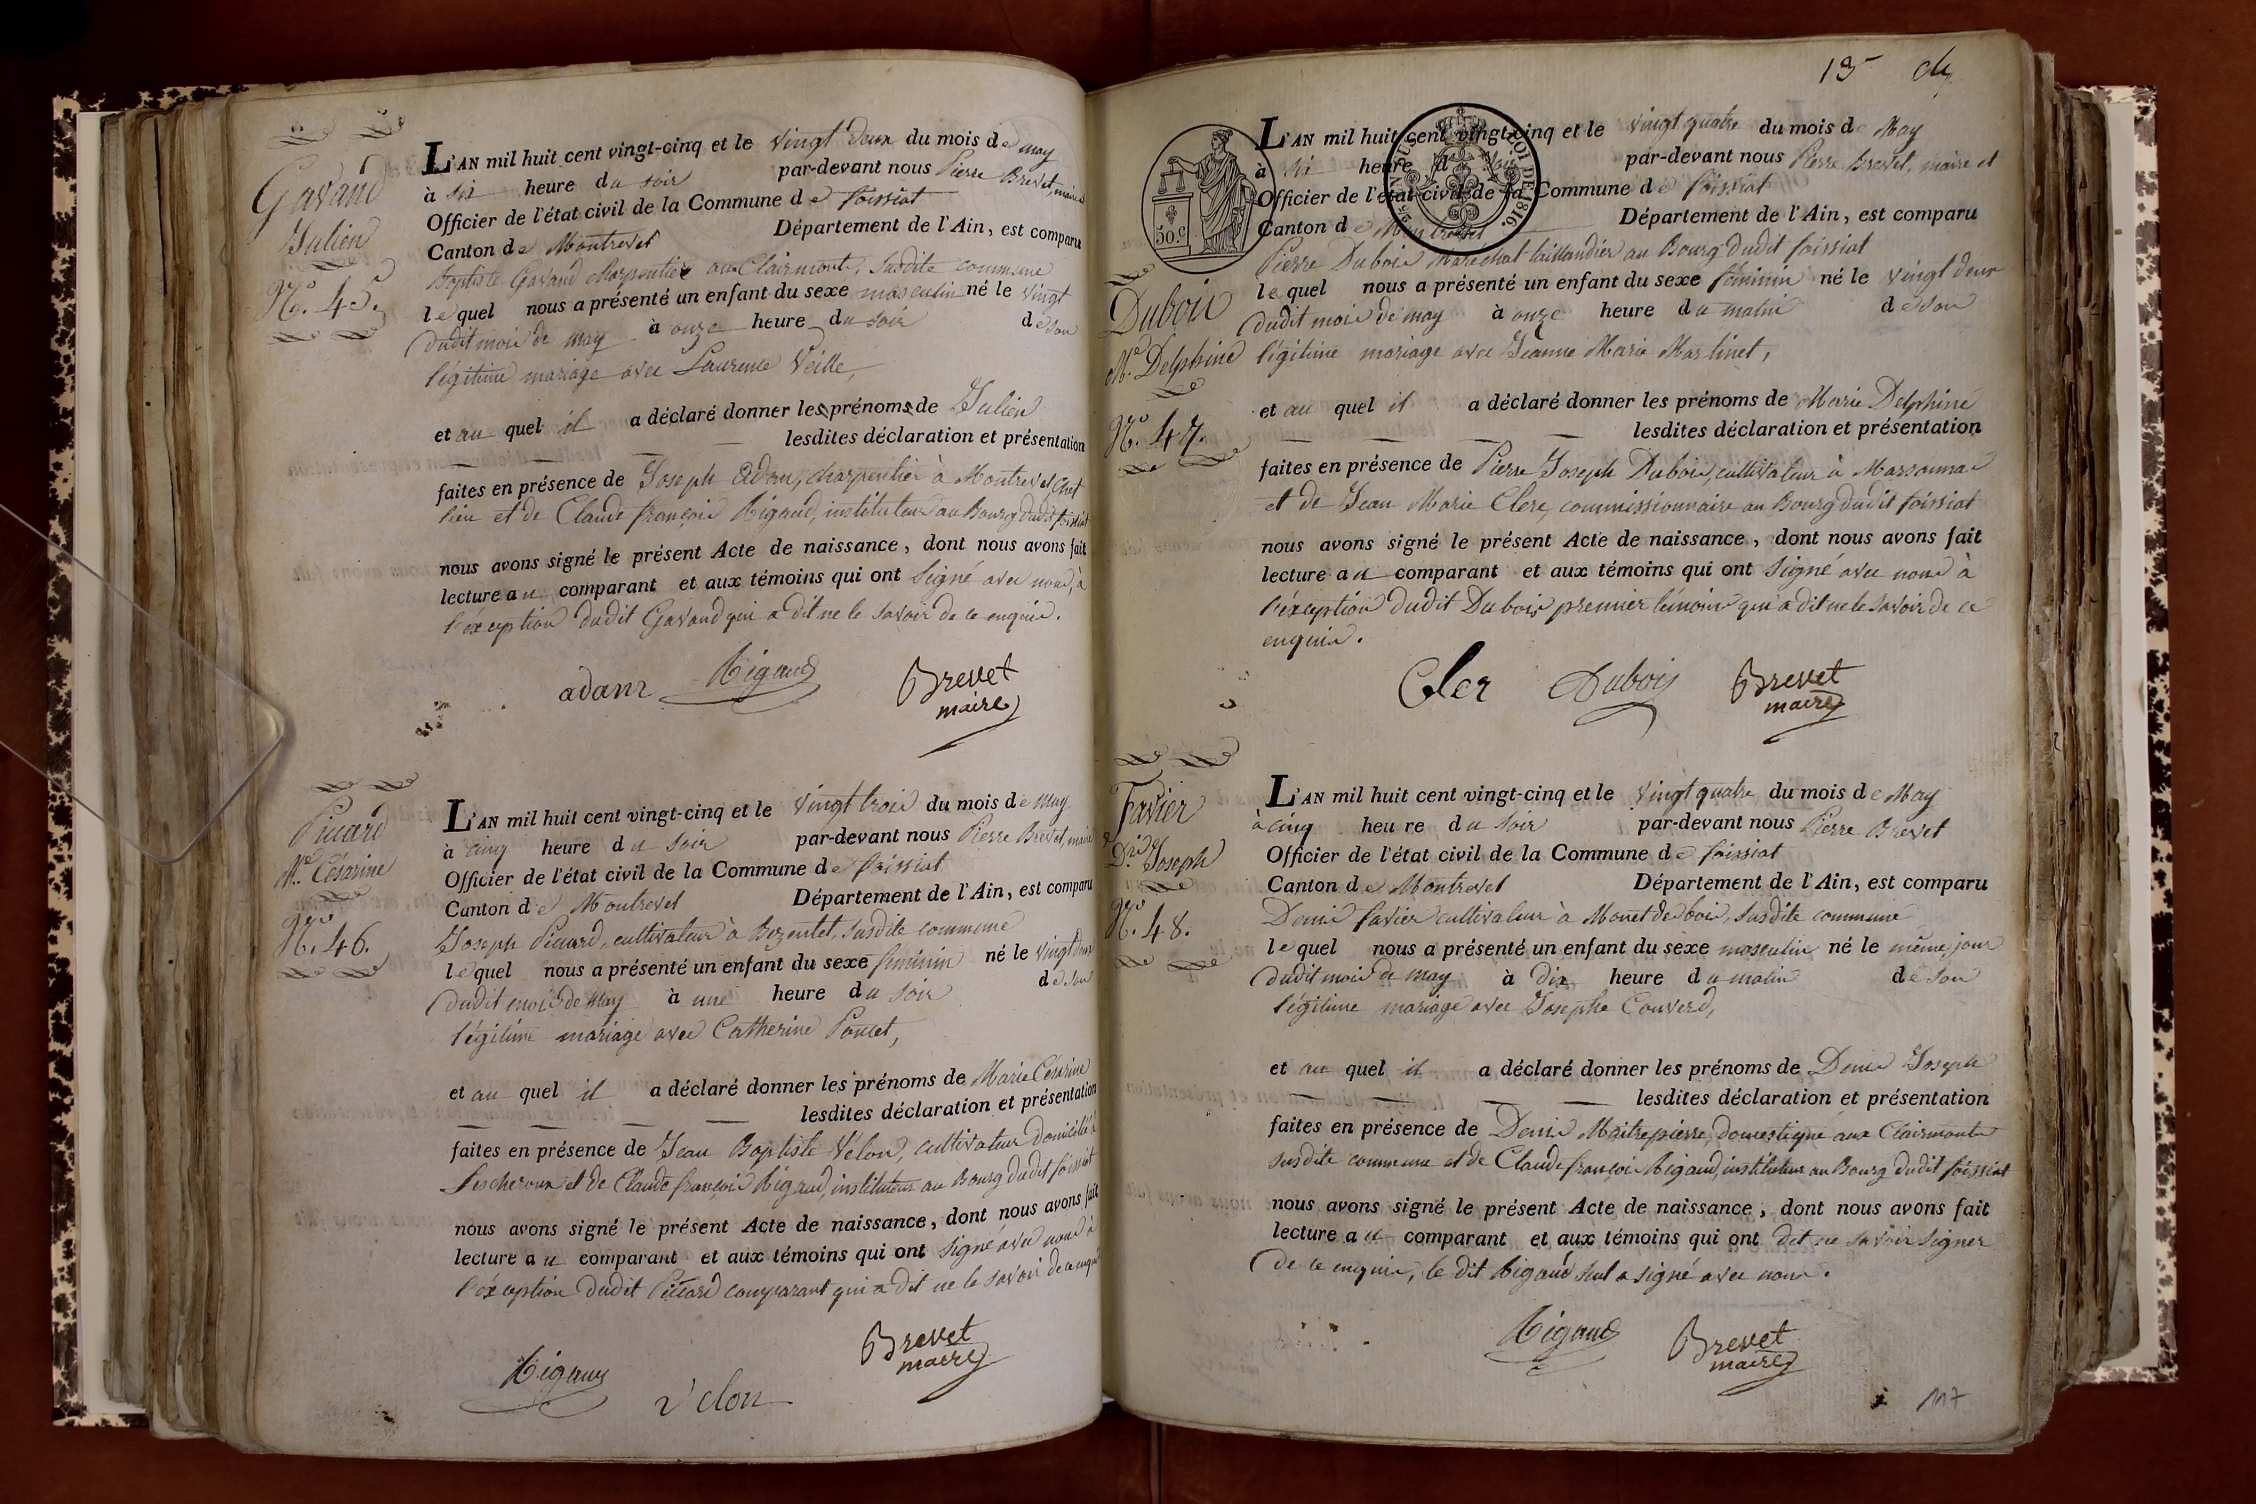 Gavand
Julien
N.o 45.
L'AN mil huit cent vingt-cinq et le vingt deux du mois de may
à six heure du soir par-devant nous Pierre Brevet, maire
Officier de l'état civil de la Commune de foissiat
Canton de Montrevel Département de l'Ain, est comparu
Baptiste Gavand charpentier aux Clairmonts, susdite commune
lequel nous a présenté un enfant du sexe masculin né le vingt
dudit mois de may à onze heure du soir de son
légitime mariage avec Laurence Veille,
et au quel il a déclaré donner les prénoms de Julien
lesdites déclaration et présentation
faites en présence de Joseph Adam, charpentier à Montrevel, chef
lieu et de Claude françois Rigaud, instituteur au Bourg dudit foissiat
nous avons signé le présent Acte de naissance, dont nous avons fait
lecture au comparant et aux témoins qui ont signé avec nous, à
l'éxception dudit Gavand qui a dit ne le savoir de ce enquis.
adam Rigaud Brevet
maire
Picard
M.ie Césarine
N.o 46.
L'AN mil huit cent vingt-cinq et le vingt trois du mois de may
à cinq heure du soir par-devant nous Pierre Brevet, maire
Officier de l'état civil de la Commune de foissiat
Canton de Montrevel Département de l'Ain, est comparu
Joseph Picard, cultivateur à Bezentet, susdite commune
lequel nous a présenté un enfant du sexe féminin né le vingt deux
dudit mois de May à une heure du soir de son
légitime mariage avec Catherine Poncet,
et au quel il a déclaré donner les prénoms de Marie Césarine
lesdites déclaration et présentation
faites en présence de Jean Baptiste Vélon, cultivateur domicilié à
Lescheroux et de Claude françois Rigaud, instituteur au Bourg dudit foissiat
nous avons signé le présent Acte de naissance, dont nous avons fait
lecture au comparant et aux témoins qui ont signé avec nous à
l'éxception dudit Picard comparant qui a dit ne le savoir de ce enquis
Rigaud Velon Brevet
maire
19
50.c
LOI DE 1816.
Dubois
M.ie Delphine
N.o 47.
L'AN mil huit cent vingt-cinq et le vingt quatre du mois de May
à six heure du soir par-devant nous Pierre Brevet, maire et
Officier de l'état civil de la Commune de foissiat
Canton de Montrevel Département de l'Ain, est comparu
Pierre Dubois Maréchal-taillandier au Bourg dudit foissiat
lequel nous a présenté un enfant du sexe féminin né le vingt deux
dudit mois de may à onze heure du matin de son
légitime mariage avec Jeanne Marie Martinet,
et au quel il a déclaré donner les prénoms de Marie Delphine
lesdites déclaration et présentation
faites en présence de Pierre Joseph Dubois, cultivateur à Marsonnas
et de Jean Marie Clerc, commissionnaire au Bourg dudit foissiat
nous avons signé le présent Acte de naissance, dont nous avons fait
lecture au comparant et aux témoins qui ont signé avec nous à
l'éxception dudit Dubois premier témoin qui a dit ne le savoir de ce
enquis.
Cler Dubois Brevet
maire
Favier
D.is Joseph
N.o 48.
L'AN mil huit cent vingt-cinq et le vingt quatre du mois de May
à cinq heure du soir par-devant nous Pierre Brevet
Officier de l'état civil de la Commune de foissiat
Canton de Montrevel Département de l'Ain, est comparu
Denis favier cultivateur à Monet de bois, susdite commune
lequel nous a présenté un enfant du sexe masculin né le même jour
dudit mois de may à dix heure du matin de son
légitime mariage avec Josephe Couverd,
et au quel il a déclaré donner les prénoms de Denis Joseph
lesdites déclaration et présentation
faites en présence de Denis Maitrepierre, domestique aux Clairmonts
susdite commune et de Claude françois Rigaud, instituteur au Bourg dudit foissiat
nous avons signé le présent Acte de naissance, dont nous avons fait
lecture au comparant et aux témoins qui ont dit ne savoir signer
de ce enquis, le dit Rigaud seul a signé avec nous.
Rigaud Brevet
maire
117